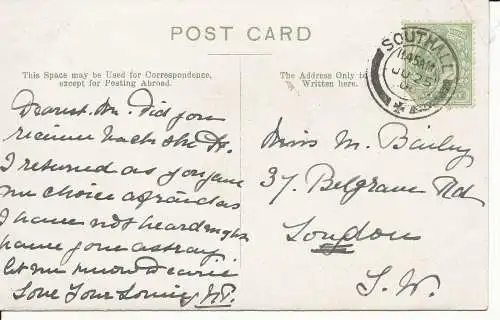 POST CARD
This Space may be Used for Correspondence,
except for Posting Abroad.
The Address Only to
Written here.
SOUTHALL
11.45AM
JU 25
Dearest M. Did you
receive back the Pc.
I returned as you gave
me choice afraid as
I have not heard might
have gone astray.
let me know Dearie
Love Your Loving
Miss M. Bailey
37, Belgrave Rd
London
S.W.